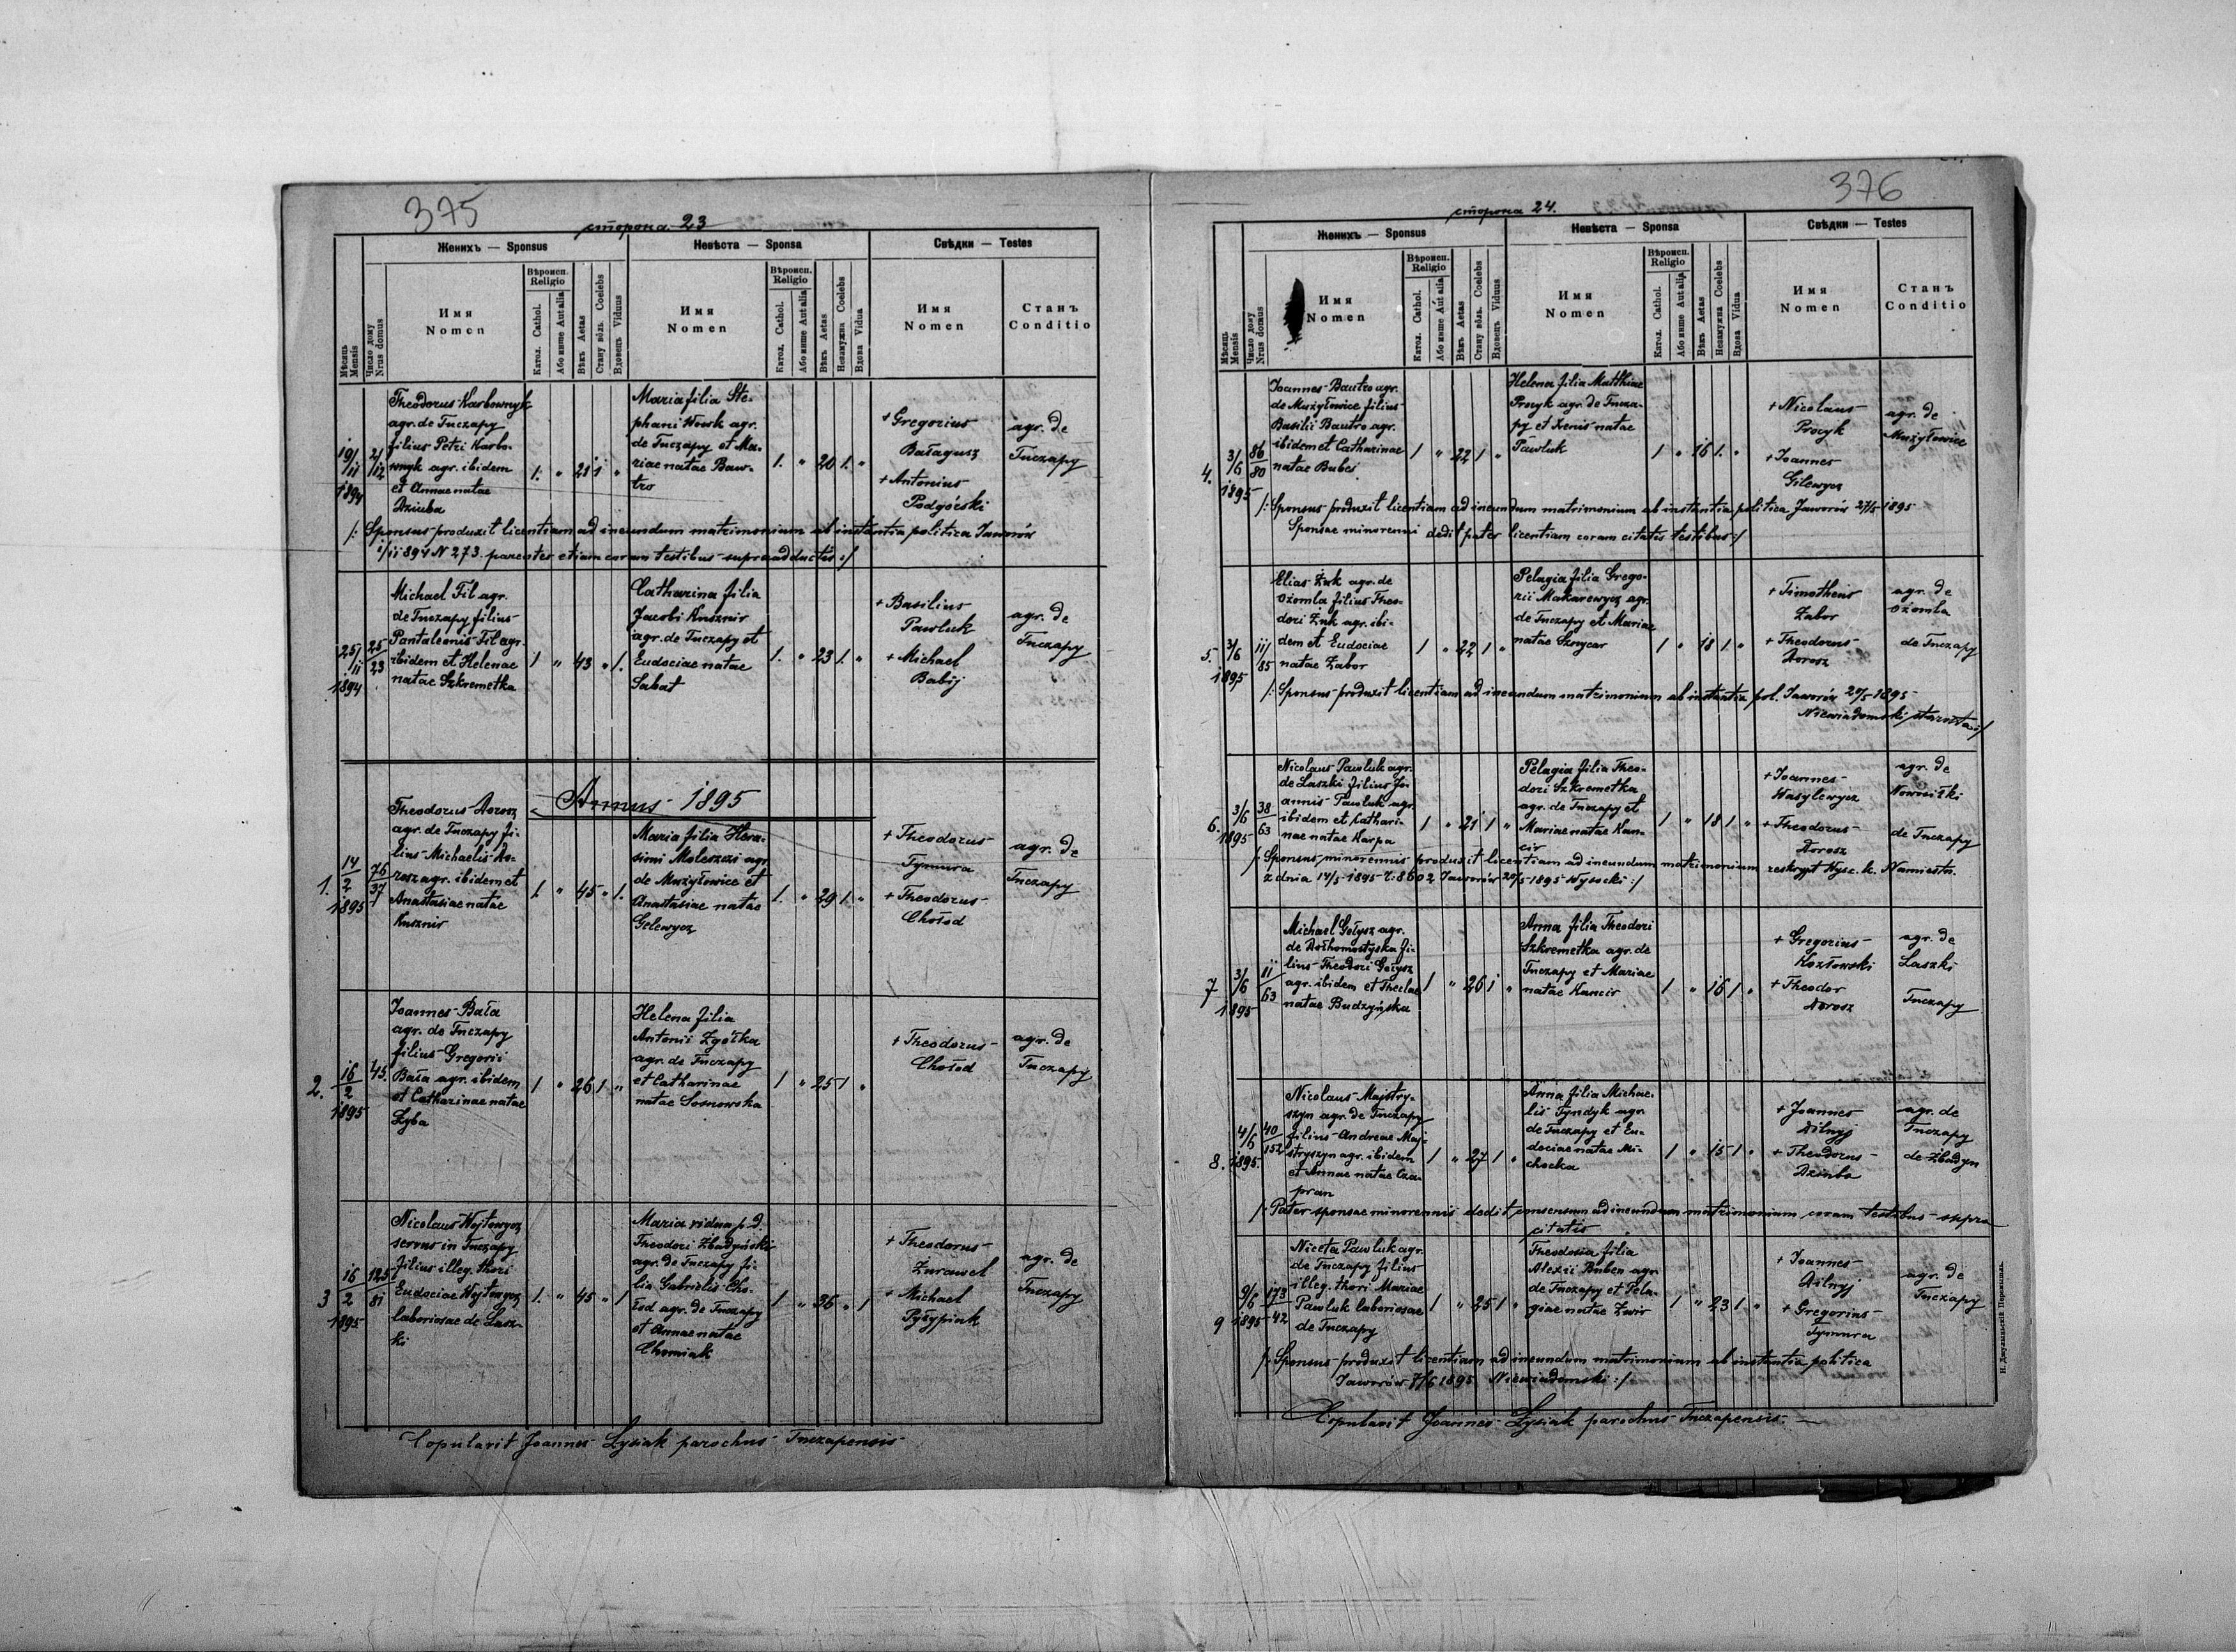 375
сторона 23
Женихъ — Sponsus
Невѣста — Sponsa
Свѣдки — Testes
Мѣсяць Mensis
Число дому Nrus domus
Имя
Nomen
Вѣроисп.
Religio
Катол. Cathol.
Або инше Aut alia
Вѣкъ Aetas
Стану вôль. Coelebs
Вдовець Viduus
Имя
Nomen
Вѣроисп.
Religio
Катол. Cathol.
Або инше Aut alia
Вѣкъ Aetas
Незамужна Coelebs
Вдова Vidua
Имя
Nomen
Станъ
Conditio
19/11 1894
2/112
Theodorus Karbownyk
agr. de Tuczapy
filius Petri Karbo-
wnyk agr. ibidem
et Annae natae
Dziuba
1. " 21 1 "
Maria filia Ste-
phani Wowk agr.
de Tuczapy et Ma-
riae natae Baw-
tro
1. " 20 1. "
+ Gregorius
Bałagusz
+ Antonius
Podgórski
agr. de
Tuczapy
/: Sponsus produxit licentiam ad ineundum matrimonium ab instantia politica Jaworów
/11 894 N 273. parentes etiam coram testibus supra adductis :/
25/11 1894
25/23
Michael Fil agr.
de Tuczapy filius
Pantaleonis Fil agr.
ibidem et Helenae
natae Szkremetka
1 " 43 " 1.
Catharina filia
Jacobi Kusznir
agr. de Tuczapy et
Eudociae natae
Sabat
1. " 23 1. "
+ Basilius
Pawluk
+ Michael
Babij
agr. de
Tuczapy
Annus 1895
1. 14/2 1895
76/37
Theodorus Dorosz
agr. de Tuczapy fi-
lius Michaelis Do-
rosz agr. ibidem et
Anastasiae natae
Kusznir
1. " 45 " 1.
Maria filia Hera-
simi Moleszczi agr.
de Mużyłowice et
Anastasiae natae
Gilewycz
1. " 29 1. "
+ Theodorus
Tymura
+ Theodorus
Chołod
agr. de
Tuczapy
2. 16/2 1895
45.
Joannes Bała
agr. de Tuczapy
filius Gregorii
Bała agr. ibidem
et Catharinae natae
Zyba
1 " 26 1 "
Helena filia
Antonii Zgółka
agr. de Tuczapy
et Catharinae
natae Sosnowska
1 " 25 1 "
+ Theodorus
Chołod
agr. de
Tuczapy
3 16/2 1895
125/81
Nicolaus Wojtowycz
servus in Tuczapy
filius illeg. thori
Eudociae Wojtowycz
laboriosae de Lasz-
ki
1. " 45 " 1
Maria vidua p. d.
Theodori Zbadyński
agr. de Tuczapy fi-
lia Gabrielis Cho-
łod agr. de Tuczapy
et Annae natae
Chomiak
1 " 36 " 1
+ Theodorus
Zurawel
+ Michael
Pyłypiak
agr. de
Tuczapy
Copulavit Joannes Łysiak parochus Tuczapensis
376
сторона 24.
Женихъ — Sponsus
Невѣста — Sponsa
Свѣдки — Testes
Мѣсяць Mensis
Число дому Nrus domus
Имя
Nomen
Вѣроисп.
Religio
Катол. Cathol.
Або инше Aut alia
Вѣкъ Aetas
Стану вôль. Coelebs
Вдовець Viduus
Имя
Nomen
Вѣроисп.
Religio
Катол. Cathol.
Або инше Aut alia
Вѣкъ Aetas
Незамужна Coelebs
Вдова Vidua
Имя
Nomen
Станъ
Conditio
4. 3/6 1895
86/80
Joannes Bautro agr.
de Mużyłowice filius
Basilii Bautro agr.
ibidem et Catharinae
natae Bubes
1 " 22 1 "
Helena filia Matthiae
Procyk agr. de Tucza-
py et Xenis natae
Pawluk
1 " 16 1. "
+ Nicolaus
Procyk
+ Joannes
Gilewycz
agr. de
Mużyłowice
/: Sponsus produxit licentiam ad ineundum matrimonium ab instantia politica Jaworów 27/5 1895
Sponsae minorenni dedit pater licentiam coram citatis testibus :/
5. 3/6 1895
111/85
Elias Żuk agr. de
Ożomla filius Theo-
dori Żuk agr. ibi-
dem et Eudociae
natae Zabor
1 " 22 1 "
Pelagia filia Grego-
rii Makarewycz agr.
de Tuczapy et Mariae
natae Sznycar
1 " 18 1. "
+ Timotheus
Zabor
+ Theodorus
Dorosz
agr. de
Ożomla
de Tuczapy
/: Sponsus produxit licentiam ad ineundum matrimonium ab instantia pol. Jaworów 20/5 1895
Niewiadomski starosta :/
6. 3/6 1895
38/63
Nicolaus Pawluk agr.
de Laszki filius Jo-
annis Pawluk agr.
ibidem et Cathari-
nae natae Karpa
1 " 21 1 "
Pelagia filia Theo-
dori Szkremetka
agr. de Tuczapy et
Mariae natae Kan-
cir
1 " 18 1 "
+ Joannes
Wasylewycz
+ Theodorus
Dorosz
agr. de
Nowosiłki
de Tuczapy
/: Sponsus minorennis produxit licentiam ad ineundum matrimonium reskrypt Wys. c. k. Namiestn.
z dnia 14/5 1895 L. 8602 Jaworów 20/5 1895 Wysocki :/
7 3/6 1895
11/63
Michael Gołysz agr.
de Dołhomostyska fi-
lius Theodori Gołysz
agr. ibidem et Theclae
natae Budzyńska
1 " 26 1 "
Anna filia Theodori
Szkremetka agr. de
Tuczapy et Mariae
natae Kancir
1 " 16 1 "
+ Gregorius
Kozłowski
+ Theodor
Dorosz
agr. de
Laszki
Tuczapy
8. 4/6 1895
40/152
Nicolaus Majstry-
szyn agr. de Tuczapy
filius Andreae Maj-
stryszyn agr. ibidem
et Annae natae Cza-
pran
1 " 27 1 "
Anna filia Michae-
lis Tyndyk agr.
de Tuczapy et Eu-
dociae natae Mi-
chocka
1 " 15 1 "
+ Joannes
Dilnyj
+ Theodorus
Dziuba
agr. de
Tuczapy
de Zbadyn
/: Pater sponsae minorennis dedit consensum ad ineundum matrimonium coram testibus supra
citatis
9 9/6 1895
173/42
Niceta Pawluk agr.
de Tuczapy filius
illeg. thori Mariae
Pawluk laboriosae
de Tuczapy
1 " 25 1 "
Theodosia filia
Alexii Buben agr.
de Tuczapy et Pela-
giae natae Zwir
1 " 23 1 "
+ Joannes
Dilnyj
+ Gregorius
Tymura
agr. de
Tuczapy
/: Sponsus produxit licentiam ad ineundum matrimonium ab instantia politica
Jaworów 7/6 1895 Niewiadomski :/
Copulavit Joannes Łysiak parochus Tuczapensis
Н. Джулиньскій Перемышль.